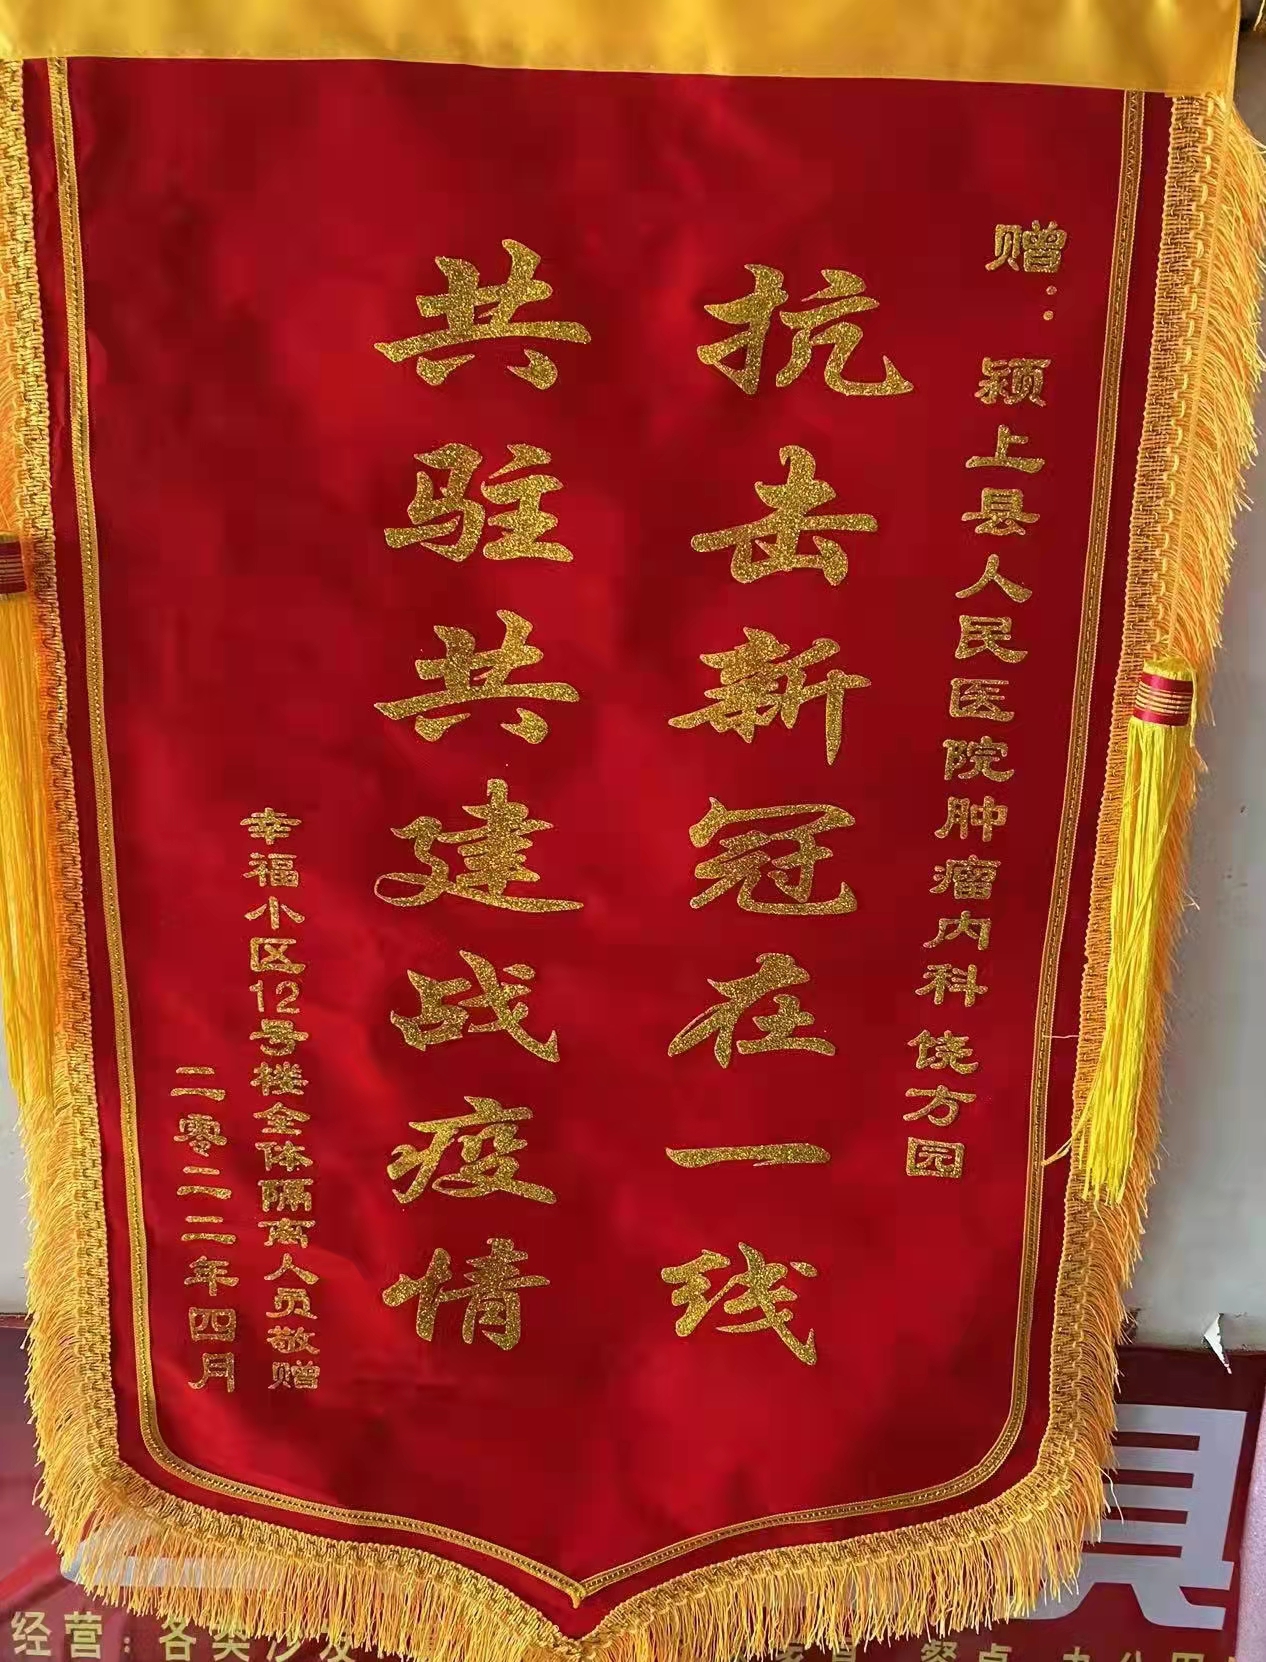 赠：颍上县人民医院肿瘤内科 饶方园
抗击新冠在一线
共驻共建战疫情
幸福小区12号楼全体隔离人员敬赠
二零二二年四月
具
经营：各类沙发
餐桌
办公用